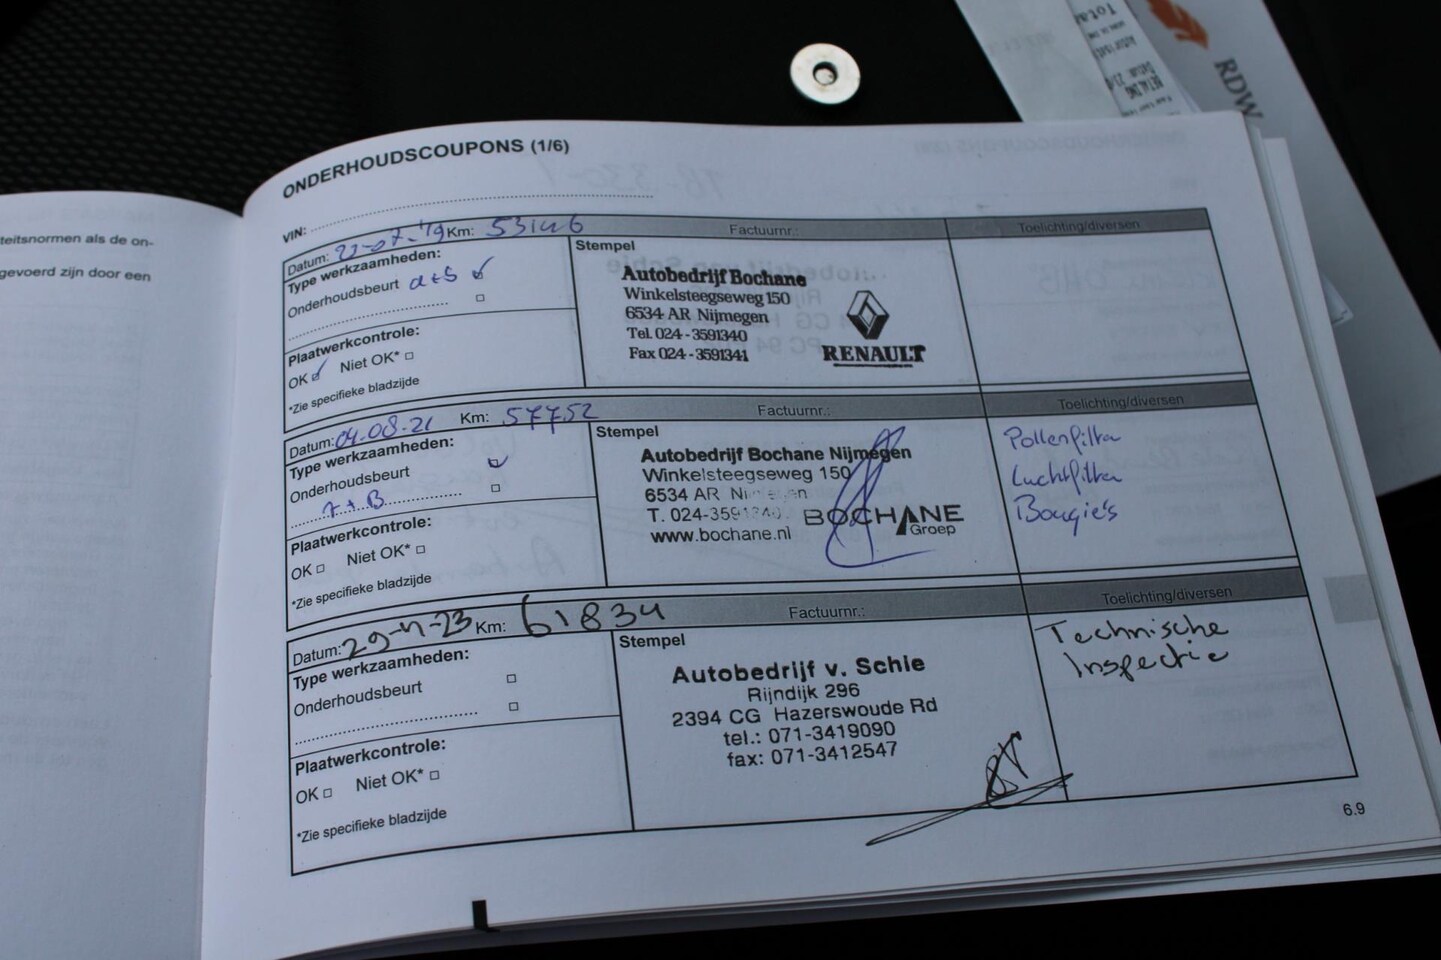 teitsnormen als de on-
gevoerd zijn door een
RDW
Total
BETALING
ONDERHOUDSCOUPONS (1/6)
VIN:
Datum: 23-07-'19 Km: 53146 Factuurnr.: Toelichting/diversen
Type werkzaamheden:
Onderhoudsbeurt a+S
Plaatwerkcontrole:
OK Niet OK*
*Zie specifieke bladzijde
Stempel
Autobedrijf Bochane
Winkelsteegseweg 150
6534 AR Nijmegen
Tel. 024-3591340
Fax 024-3591341
RENAULT
Datum: 04-08-21 Km: 57752 Factuurnr.: Toelichting/diversen
Type werkzaamheden:
Onderhoudsbeurt
7+B
Plaatwerkcontrole:
OK Niet OK*
*Zie specifieke bladzijde
Stempel
Autobedrijf Bochane Nijmegen
Winkelsteegseweg 150
6534 AR Nijmegen
T. 024-3591340
www.bochane.nl
BOCHANE
Groep
Pollenfilter
Luchtfilter
Bougie's
Datum: 29-11-23 Km: 61834 Factuurnr.: Toelichting/diversen
Type werkzaamheden:
Onderhoudsbeurt
Plaatwerkcontrole:
OK Niet OK*
*Zie specifieke bladzijde
Stempel
Autobedrijf v. Schie
Rijndijk 296
2394 CG Hazerswoude Rd
tel.: 071-3419090
fax: 071-3412547
Technische
Inspectie
6.9